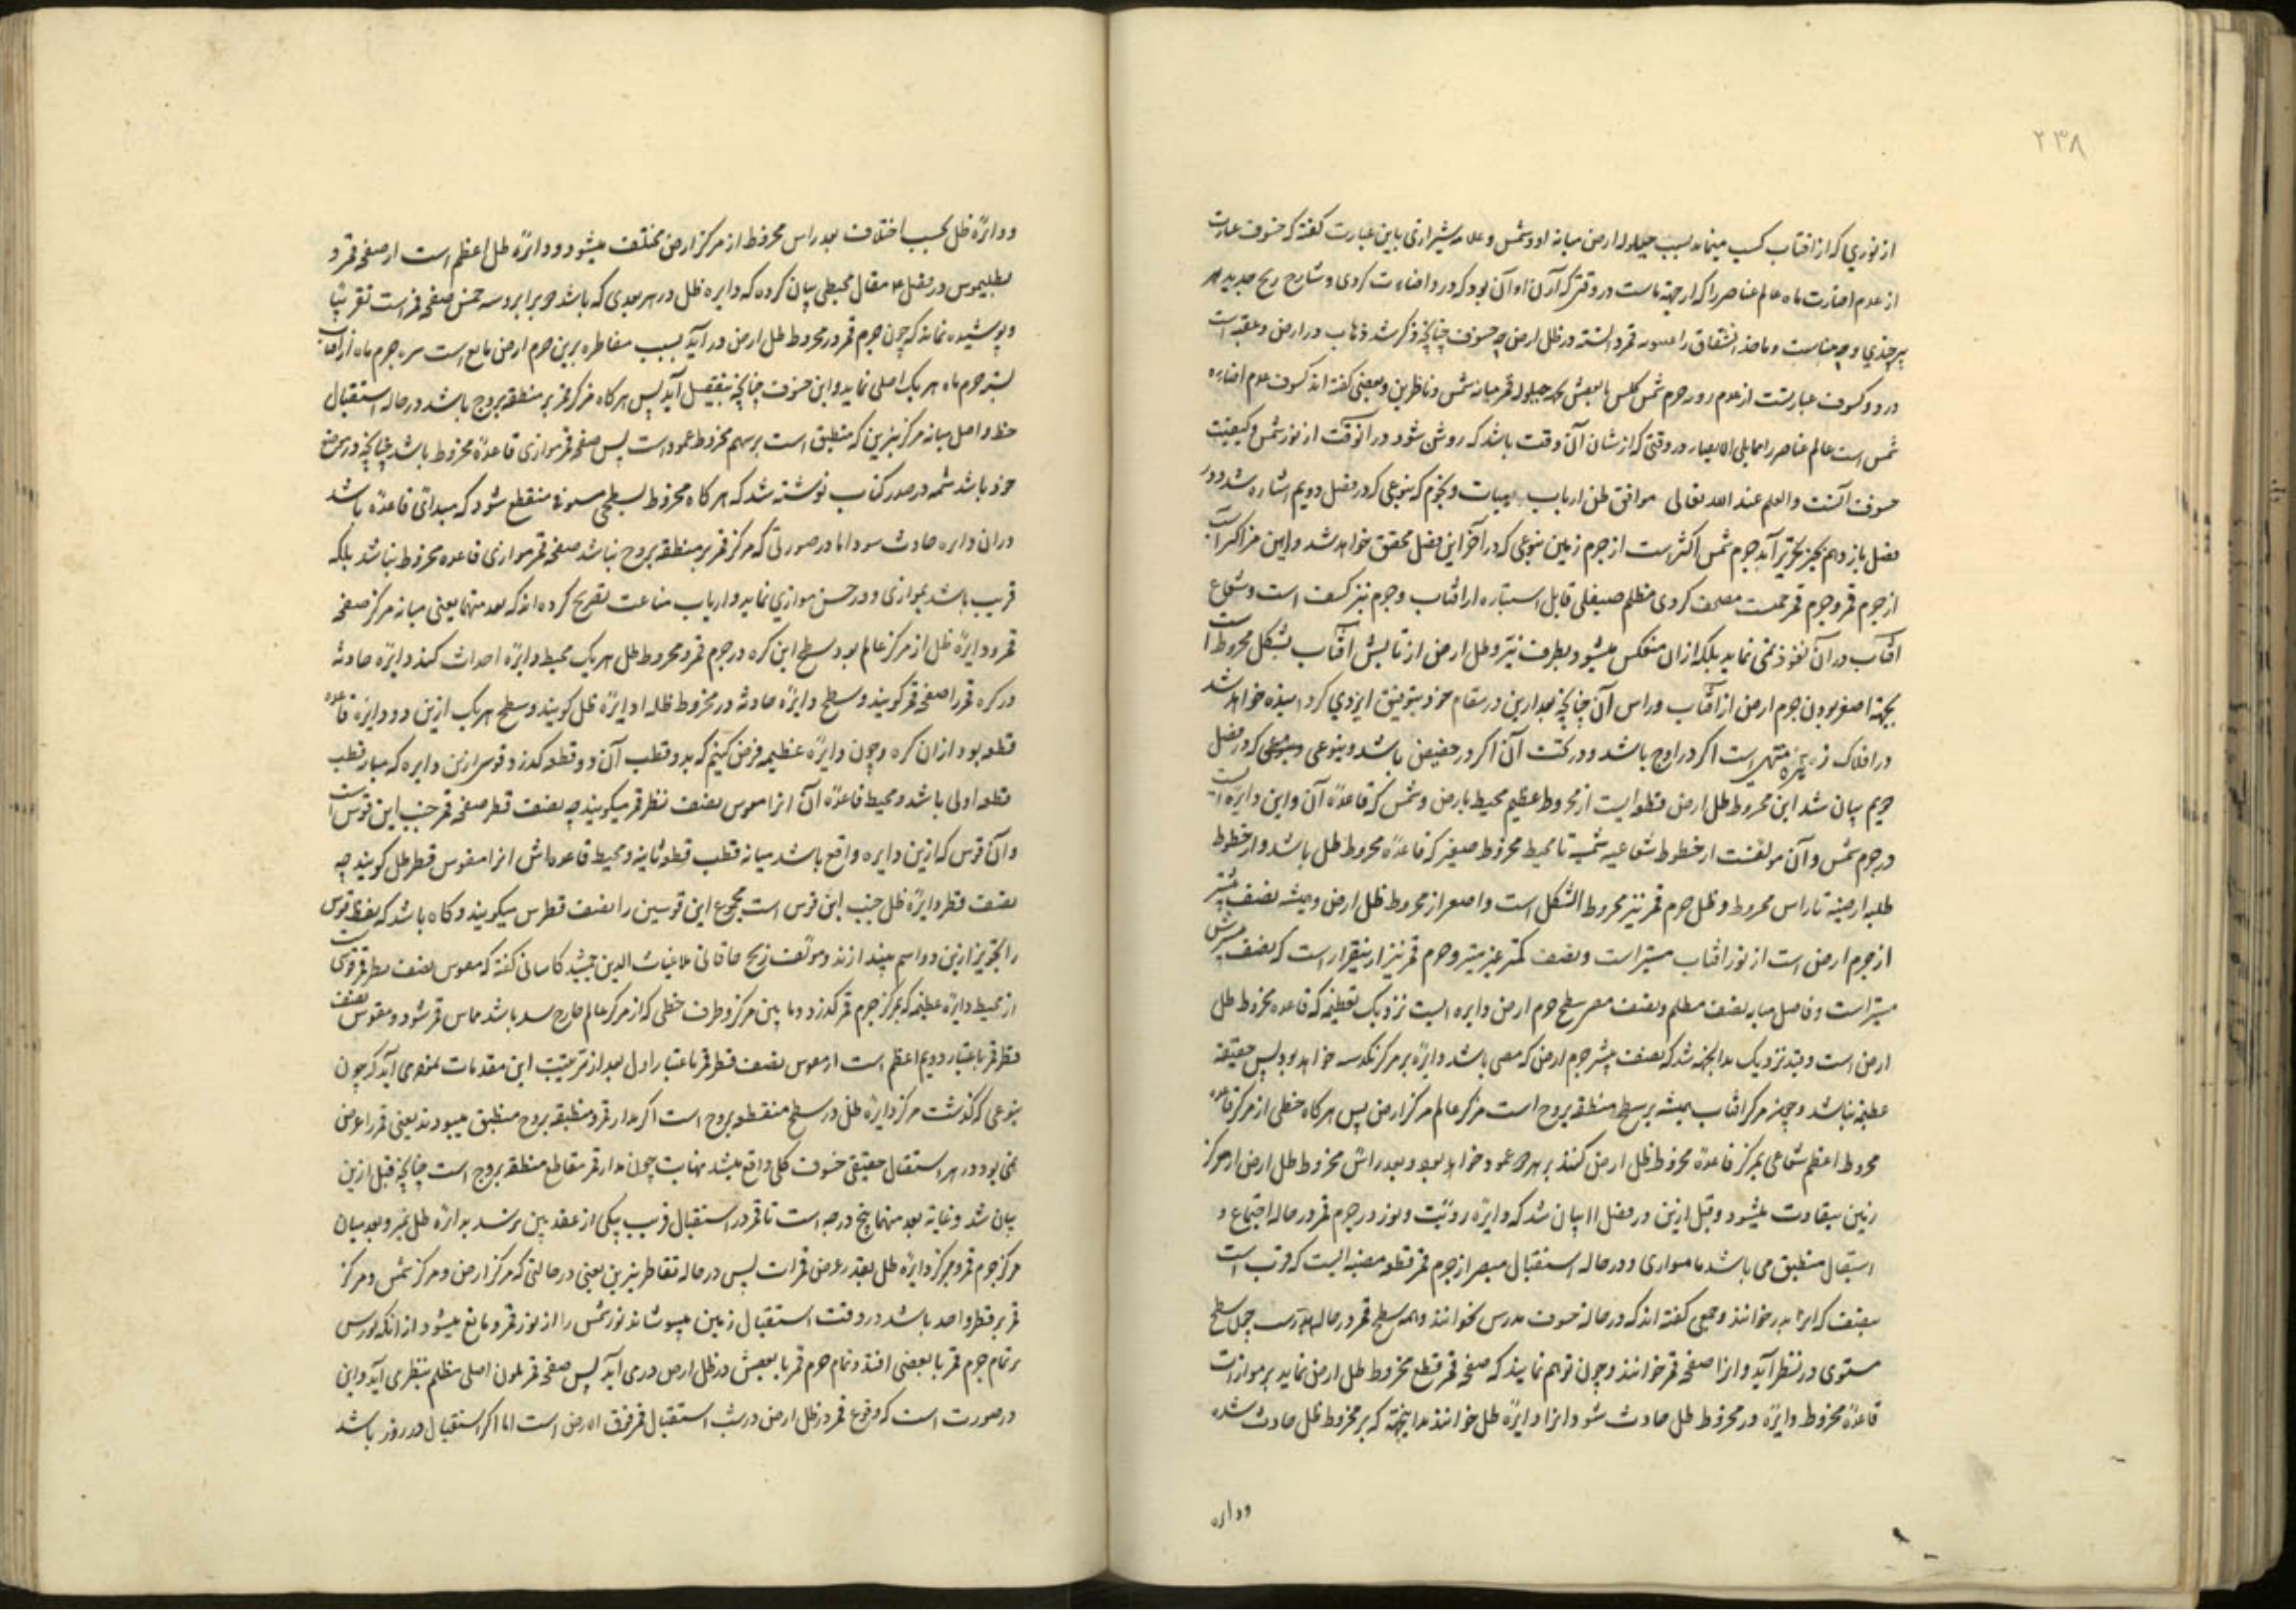 ۲۳۸
از نوری که از افتاب کسب مینماید بسبب حیلوله ارض میانه او و شمس و علامه شیرازی باین عبارت کفته که خسوف عبارت
از عدم اضائت ماه عالم عناصر را که از جهة ماست در وقتی که از آن او آن بود که در و اضاءت کردی و شارح زیج جدید
بیرجندی و ماخذ اشتقاق را قمر در ظل ارض چه خسوف چنانچه ذکر شد ذهاب در ارض است
در و کسوف عبارتست از عدم جرم شمس کلش یا بعضش بجهة حیلوله قمر میانه شمس و ناظرین و بعضی کفته اند کسوف عدم اضاءه
شمس است عالم عناصر را در وقتی که از شان آن وقت باشد که روشن شود در آنوقت از نور شمس و کیفیت
خسوف آنست والعلم عند الله تعالی موافق ظن ارباب هیئات و نجوم که بنوعی که در فصل دویم اشاره شد و در
فصل یازدهم بحیز تحریر آید جرم شمس اکثر است از جرم زمین بنوعی که در آخر این فصل محقق خواهد شد و این هر است
از جرم قمر و جرم قمر کروی مظلم صیقلی قابل استناره از افتاب و جرم نیز کسف است و شعاع
آفتاب در آن نفوذ نمی نماید بلکه از ان منعکس میشود بطرف نیّر و ظل ارض از تابش آفتاب بشکل مخروط است
بجهة اصغر بودن جرم ارض از آفتاب و راس آن چنانچه بعد ازین در مقام خود بتوفیق ایزدی کرد خواهد شد
در افلاک زهره منتهی است اکر در اوج باشد و در تحت آن اکر در حضیض باشد و بنوعی که در فصل
بیان شد این مخروط ظل ارض قطعه ایست از مخروط عظیم محیط بارض و شمس که قاعده آن و این دایره ایست
در جرم شمس و آن مولفست از خطوط شعاعیه شمسیه تا محیط مخروط صغیر که قاعده مخروط ظل باشد و از خطوط
ظلیه ارضیه تا راس مخروط و ظل جرم قمر نیز مخروط الشکل است و اصغر از مخروط ظل ارض و همیشه نصف بیشتر
از جرم ارض است از نور افتاب مستنیر است و نصف کمتر غیر مستنیر و جرم قمر نیز ازینقرار است که نصف بیشترش
مستنیر است و فاصل میانه نصف مظلم و نصف سطح جرم ارض دایره ایست نزدیک بعظیمه که قاعده مخروط ظل
ارض است و قید نزدیک بدانجهة شد که نصف بیشتر جرم ارض که مضی باشد دایره بر مرکز نکذشته خواهد بود پس حقیقة
عظیمه نباشد و چون مرکز افتاب همیشه بر سطح منطقه بروج است مرکز عالم مرکز ارض پس هر کاه خطی از مرکز قاعده
مخروط اعظم شعاعی بمرکز قاعده مخروط ظل ارض کنند بر هر دو عمود خواهد بود و بعد راس مخروط ظل ارض از مرکز
زمین متفاوت میشود و قبل ازین در فصل ۱۱ بیان شد که دایره رویت و نور در جرم قمر در حاله اجتماع و
استقبال منطبق می باشد یا موازی و در حاله استقبال مبصر از جرم قمر قطعه مضیئه ایست که قریب است
بنصف که انرا بدر خوانند و جمعی کفته اند که در حاله خسوف بدرش نخوانند و همه سطح قمر در حاله بدریت چون سطح
مستوی در نظر آید و انرا صفحه قمر خوانند و چون توهم نمایند که صفحه قمر قطع مخروط ظل ارض نماید بر موازات
قاعده مخروط دایره در مخروط ظل حادث شود انرا دایره ظل خوانند بدانجهة که بر مخروط ظل حادث شده
و دایره
و دایره ظل بحسب اختلاف بعد راس مخروط از مرکز ارض مختلف میشود و دایره ظل اعظم است از صفحه قمر و
بطلیموس در فصل مقاله مجسطی بیان کرده که دایره ظل در هر بعدی که باشد دو برابر و سه خمس صفحه قمر است تقریبا
و پوشیده نماند که چون جرم قمر در مخروط ظل ارض در آید بسبب مقاطره نیرین جرم ارض مانع است جرم ماه از آفتاب
جرم ماه برنک اصلی نماید و این خسوف چنانچه بتفصیل آید پس هر کاه مرکز قمر بر منطقه بروج باشد در حاله استقبال
خط واصل میانه مرکز نیرین که منطبق است بر سهم مخروط عمود است پس صفحه قمر موازی قاعده مخروط باشد چنانچه در موضع
خود باشد در صدر کتاب نوشته شد که هر کاه مخروط بسطحی مستوی منقطع شود که موازی قاعده باشد
در ان دایره حادث شود اما در صورتی که مرکز قمر بر منطقه بروج نباشد صفحه قمر موازی قاعده مخروط نباشد بلکه
قریب باشد بموازی و در حسن موازی نماید و ارباب صناعت تصریح کرده اند که بعد منهما یعنی میانه مرکز صفحه
قمر و دایره ظل از مرکز عالم بود سطح این کره در جرم قمر و مخروط ظل هر یک محیط دایره احداث کند دایره حادثه
در کره قمر را صفحه قمر کویند و سطح دایره حادثه در مخروط ظل را دایره ظل کویند و سطح هر یک ازین دو دایره قاعده
قطعه بود از ان کره و چون دایره عظیمه فرض کنیم که بدو قطب آن دو قطعه کذرد قوس ازین دایره که میانه قطب
قطعه اولی باشد و محیط قاعده آن انرا قوس نصف قطر قمر میکویند چه نصف قطر صفحه قمر جیب این قوس است
و آن قوس که ازین دایره واقع باشد میانه قطب قطعه ثانیه و محیط قاعده اش انرا مقوس قطر ظل کویند چه
نصف قطر دایره ظل جیب این قوس است مجموع این قوسین را نصف قطرین میکویند و کاه باشد که لفظ قوس
را بتجویز ازین دو اسم بیندازند و مولف زیج خاقانی ملا غیاث الدین جمشید کاسانی کفته که مقوس نصف قطر قمر قوسی است
از محیط دایره عظیمه که بمرکز جرم قمر کذرد و ما بین مرکز و طرف خطی که از مرکز عالم خارج شده باشد مماس قمر شود و مقوس نصف
قطر قمر باعتبار دویم اعظم است از مقوس نصف قطر قمر باعتبار اول بعد از ترتیب این مقدمات آید که چون
بنوعی که کذشت مرکز دایره ظل در سطح منطقه بروج است اکر مدار قمر و منطقه بروج منطبق میبودند یعنی قمر را عرض
نمی بود در هر استقبال حقیقی خسوف کلی واقع میشد نهایت چون مدار قمر مقاطع منطقه بروج است چنانچه قبل ازین
بیان شد و غایة بعد منهما پنج درجه است تا قمر در استقبال قریب بیکی از عقدتین نرسد بدائره ظل نمیرسد و بعد میان
مرکز جرم قمر و مرکز دایره ظل بقدر عرض قمر است پس در حاله تقاطر نیرین یعنی در حالتی که مرکز ارض و مرکز شمس و مرکز
قمر بر قطر واحد باشد در وقت استقبال زمین میپوشاند نور شمس را از نور قمر و مانع میشود از انکه نورش
بر تمام جرم قمر یا بعضی افتد و تمام جرم قمر یا بعضش در ظل ارض در می آید پس صفحه قمر بلون اصلی مظلم بنظر می آید و این
در صورت است که وقوع قمر در ظل ارض در شب استقبال قمر فوق ارض است اما اکر استقبال در روز باشد